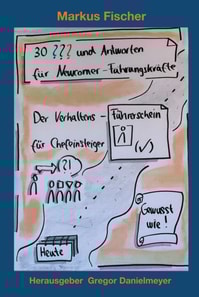 Markus Fischer
30 ??? und Antworten
für Neuromer-Führungskräfte
Der Verhaltens-
Führerschein
für Chefeinsteiger
(?!)
(✓)
Gewusst
wie!
Heute
Herausgeber Gregor Danielmeyer